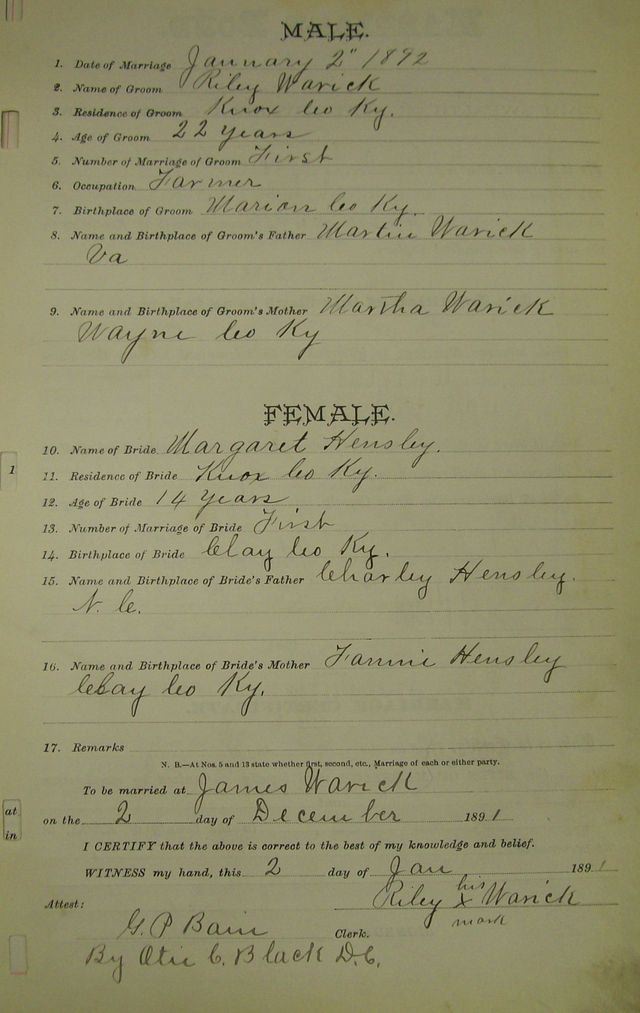 MALE.
1. Date of Marriage January 2" 1892
2. Name of Groom Riley Warick
3. Residence of Groom Knox Co Ky.
4. Age of Groom 22 years
5. Number of Marriage of Groom First
6. Occupation Farmer
7. Birthplace of Groom Marion Co Ky.
8. Name and Birthplace of Groom's Father Martin Warick
Va
9. Name and Birthplace of Groom's Mother Martha Warick
Wayne Co Ky
FEMALE.
10. Name of Bride Margaret Hensley.
11. Residence of Bride Knox Co Ky.
1
12. Age of Bride 14 years
13. Number of Marriage of Bride First
14. Birthplace of Bride Clay Co Ky.
15. Name and Birthplace of Bride's Father Charley Hensley.
N. C.
16. Name and Birthplace of Bride's Mother Fannie Hensley
Clay Co Ky.
17. Remarks
N. B.—At Nos. 5 and 13 state whether first, second, etc., Marriage of each or either party.
To be married at James Warick
at
on the 2 day of December 1891
in
I CERTIFY that the above is correct to the best of my knowledge and belief.
WITNESS my hand, this 2 day of Jan 1891
his
Attest: Riley x Warick
mark
G. P Bain Clerk.
By Otis C. Black D.C.